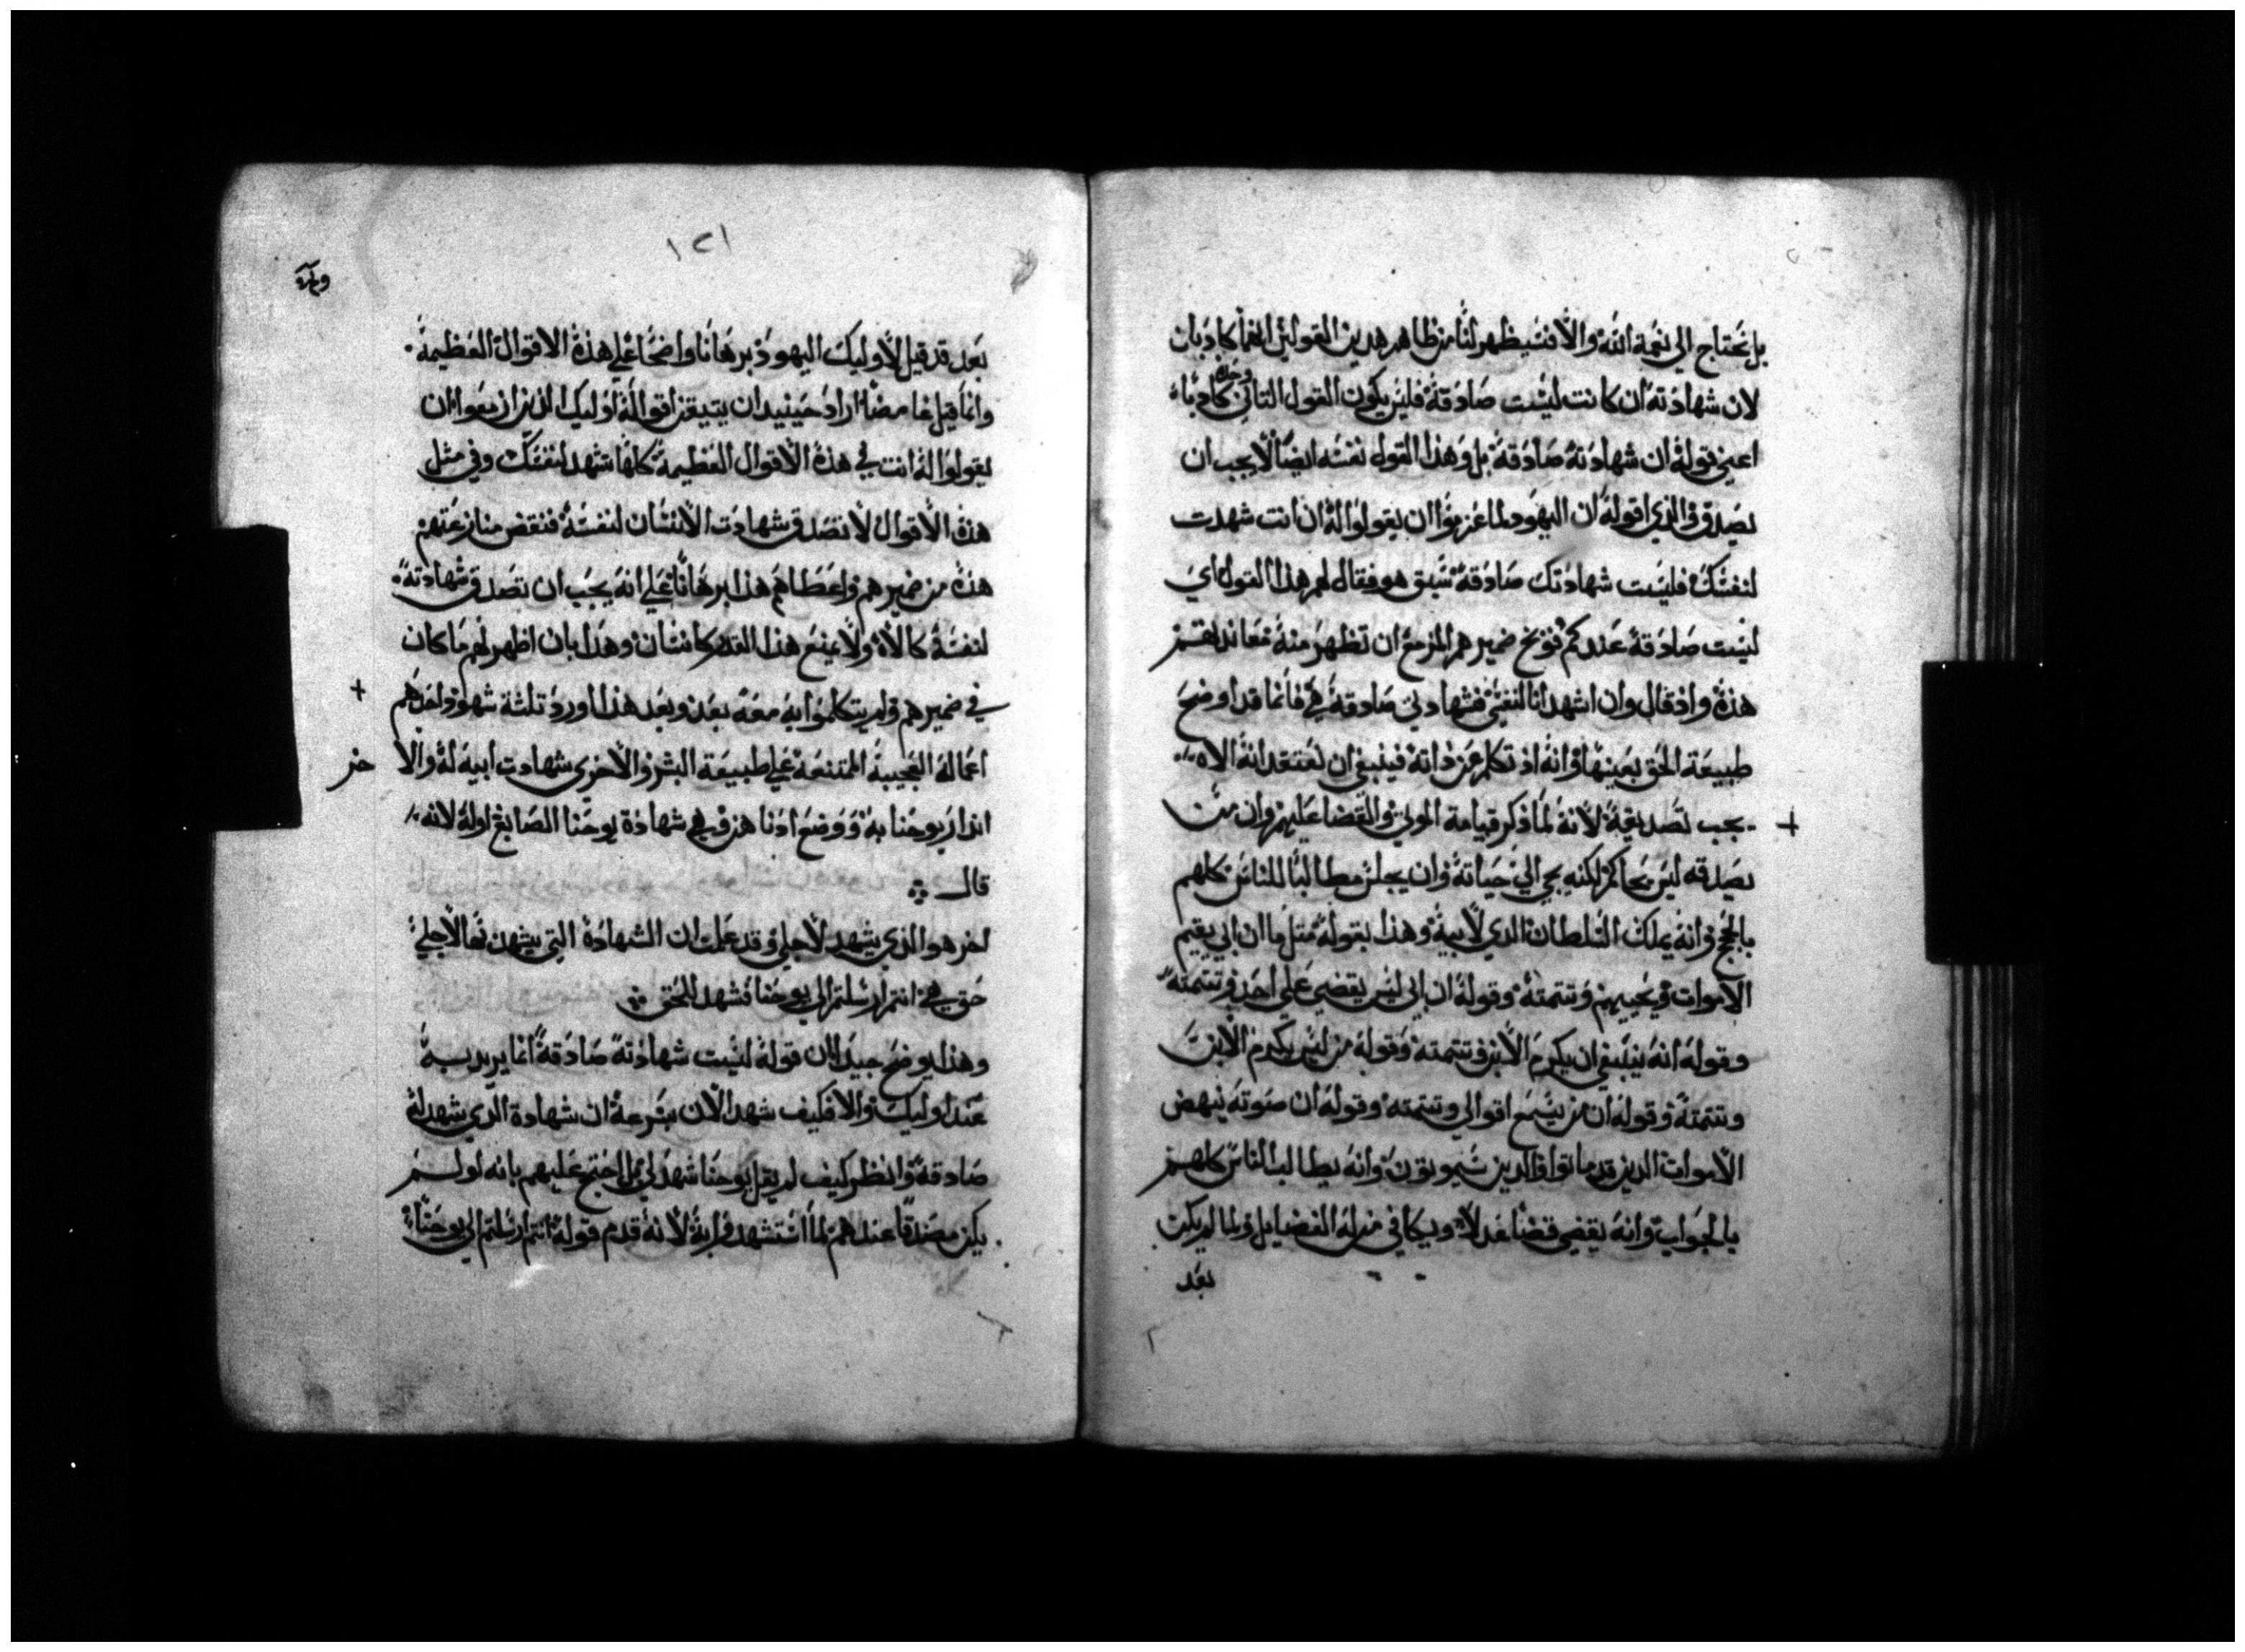 بل نحتاج الي نعمة الله والا فسيظهر لنا من ظاهر هدين القولين انهما كادبان
لان شهادته ان كانت ليست صادقة فليس يكون القول التاني وحده كادبا
اعني قوله ان شهادته صادقة بل وهذا القول نفسه ايضا لا يجب ان
يصدق فالذي اقوله ان اليهود لما عزموا ان يقولوا له ان انت شهدت
لنفسك فليست شهادتك صادقة سبق هو فقال لهم هذا القول اي
ليست صادقة عندكم فوبخ ضميرهم المزمع ان تظهر منه معاندتهم
هذه واذ قال وان اشهد انا لنفسي فشهادتي صادقة هي فانما قد اوضح
طبيعة الحق بعينها وانه اذ تكلم عن ذاته فينبغي ان نعتقد انه الاه
يجب تصديقه لانه لما ذكر قيامة الموتي والقضا عليهم وان من
يصدقه ليس يحاكم لكنه يجي الي حياته وان يجلس مطالبا للناس كلهم
بالحجج وانه يملك السلطان الدي لابيه وهذا بقوله متل ما ان ابي يقيم
الاموات ويحييهم وتتمته وقوله ان ابي ليس يقضي علي احد وتتمته
وقوله انه ينبغي ان يكرم الابن وتتمته وقوله من ليس يكرم الابن
وتتمته وقوله ان من يسمع اقوالي وتتمته وقوله ان صوته ينهض
الاموات الدين قد ماتوا والدين سيموتون وانه يطالب الناس كلهم
بالجواب وانه يقضي قضا عدلا ويكافي منزله الفضايل ولما لم يكن
بعد
١٢١
بعد قد قيل لاوليك اليهود برهانا واضحا علي هذه الاقوال العظيمة
وانما قيل غامضا اراد حينيد ان يتيقن اقواله اوليك الذين ازمعوا ان
يقولوا له انت في هذه الاقوال العظيمة كلها تشهد لنفسك وفي مثل
هذه الاقوال لا تصدق شهادت الانسان لنفسه فنقض منازعتهم
هذه من ضميرهم واعطاهم هذا برهانا علي انه يجب ان تصدق شهادته
لنفسه كالاه ولا يمنع هذا القدر كانسان وهذا بان اظهر لهم ما كان
في ضميرهم ولم يتكلموا به معه بعد وبعد هذا اورد تلثة شهود احدهم
اعماله العجيبة الممتنعة علي طبيعة البشر والاخري شهادت ابيه له والا
خر
اندار يوحنا به ووضع ادناهن وهي شهادة يوحنا الصابغ اوله لانه
قال
اخر هو الذي يشهد لاجلي وقد علمت ان الشهادة التي يشهد بها لاجلي
حق هي انتم ارسلتم الي يوحنا فشهد للحق
وهذا يوضح جيدا ان قوله ليست شهادته صادقة انما يريد به
عند اوليك والا فكيف شهد الان بسرعة ان شهادة الدي شهد له
صادقة وانظر كيف لم يقل يوحنا شهد لي بل احتج عليهم بانه لو لم
يكن مصدقا عندهم لما استشهد به لانه قدم قوله انتم ارسلتم الي يوحنا